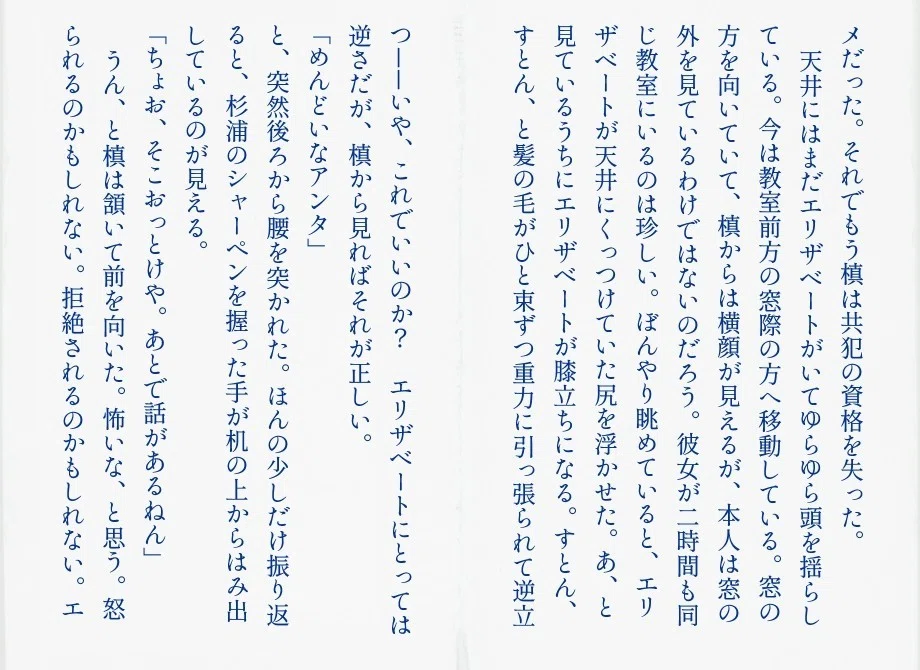 メだった。それでもう槙は共犯の資格を失った。
　天井にはまだエリザベートがいてゆらゆら頭を揺らし
ている。今は教室前方の窓際の方へ移動している。窓の
方を向いていて、槙からは横顔が見えるが、本人は窓の
外を見ているわけではないのだろう。彼女が二時間も同
じ教室にいるのは珍しい。ぼんやり眺めていると、エリ
ザベートが天井にくっつけていた尻を浮かせた。あ、と
見ているうちにエリザベートが膝立ちになる。すとん、
すとん、と髪の毛がひと束ずつ重力に引っ張られて逆立
つ——いや、これでいいのか？　エリザベートにとっては
逆さだが、槙から見ればそれが正しい。
「めんどいなアンタ」
と、突然後ろから腰を突かれた。ほんの少しだけ振り返
ると、杉浦のシャーペンを握った手が机の上からはみ出
しているのが見える。
「ちょお、そこおっとけや。あとで話があるねん」
　うん、と槙は頷いて前を向いた。怖いな、と思う。怒
られるのかもしれない。拒絶されるのかもしれない。エ